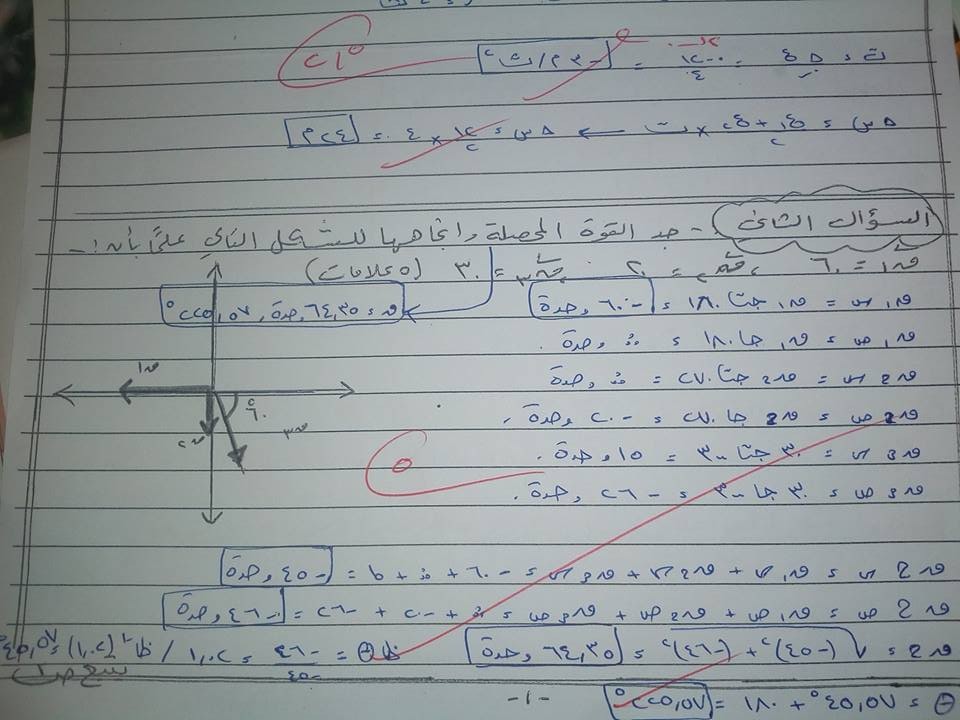 ت = Δع / ز = -١٢٠ / ٤ = -٣٠ م/ث٢
Δس = (ع١ + ع٢) / ٢ × ت ← Δس = ١٢ / ٢ × ٤ = ٢٤ م
السؤال الثاني - جد القوة المحصلة واتجاهها للشكل التالي علماً بأنه :-
ق١ = ٦٠ ، ق٢ = ٢٠ ق٣ = ٣٠ (٥ علامات)
ق١س = ق١ جتا ١٨٠ = -٦٠ وحدة
ق = ٦٤,٣٥ وحدة, ٢٢٥,٥٧°
ق١ص = ق١ جا ١٨٠ = صفر وحدة.
ق٢س = ق٢ جتا ٢٧٠ = صفر وحدة
ق٢ص = ق٢ جا ٢٧٠ = -٢٠ وحدة.
ق٣س = ٣٠ جتا ٣٠٠ = ١٥ وحدة.
ق٣ص = ٣٠ جا ٣٠٠ = -٢٦ وحدة.
ق١
٦٠°
ق٢
ق٣
٥
ق ح س = ق١س + ق٢س + ق٣س = -٦٠ + صفر + ١٥ = -٤٥ وحدة
ق ح ص = ق١ص + ق٢ص + ق٣ص = صفر + -٢٠ + -٢٦ = -٤٦ وحدة
ق ح = √(-٤٥)٢ + (-٤٦)٢ = ٦٤,٣٥ وحدة
ظا θ = -٤٦ / -٤٥ = ١,٠٢ / ظا-١ (١,٠٢) = ٤٥,٥٧°
θ = ٤٥,٥٧° + ١٨٠ = ٢٢٥,٥٧°
-١-